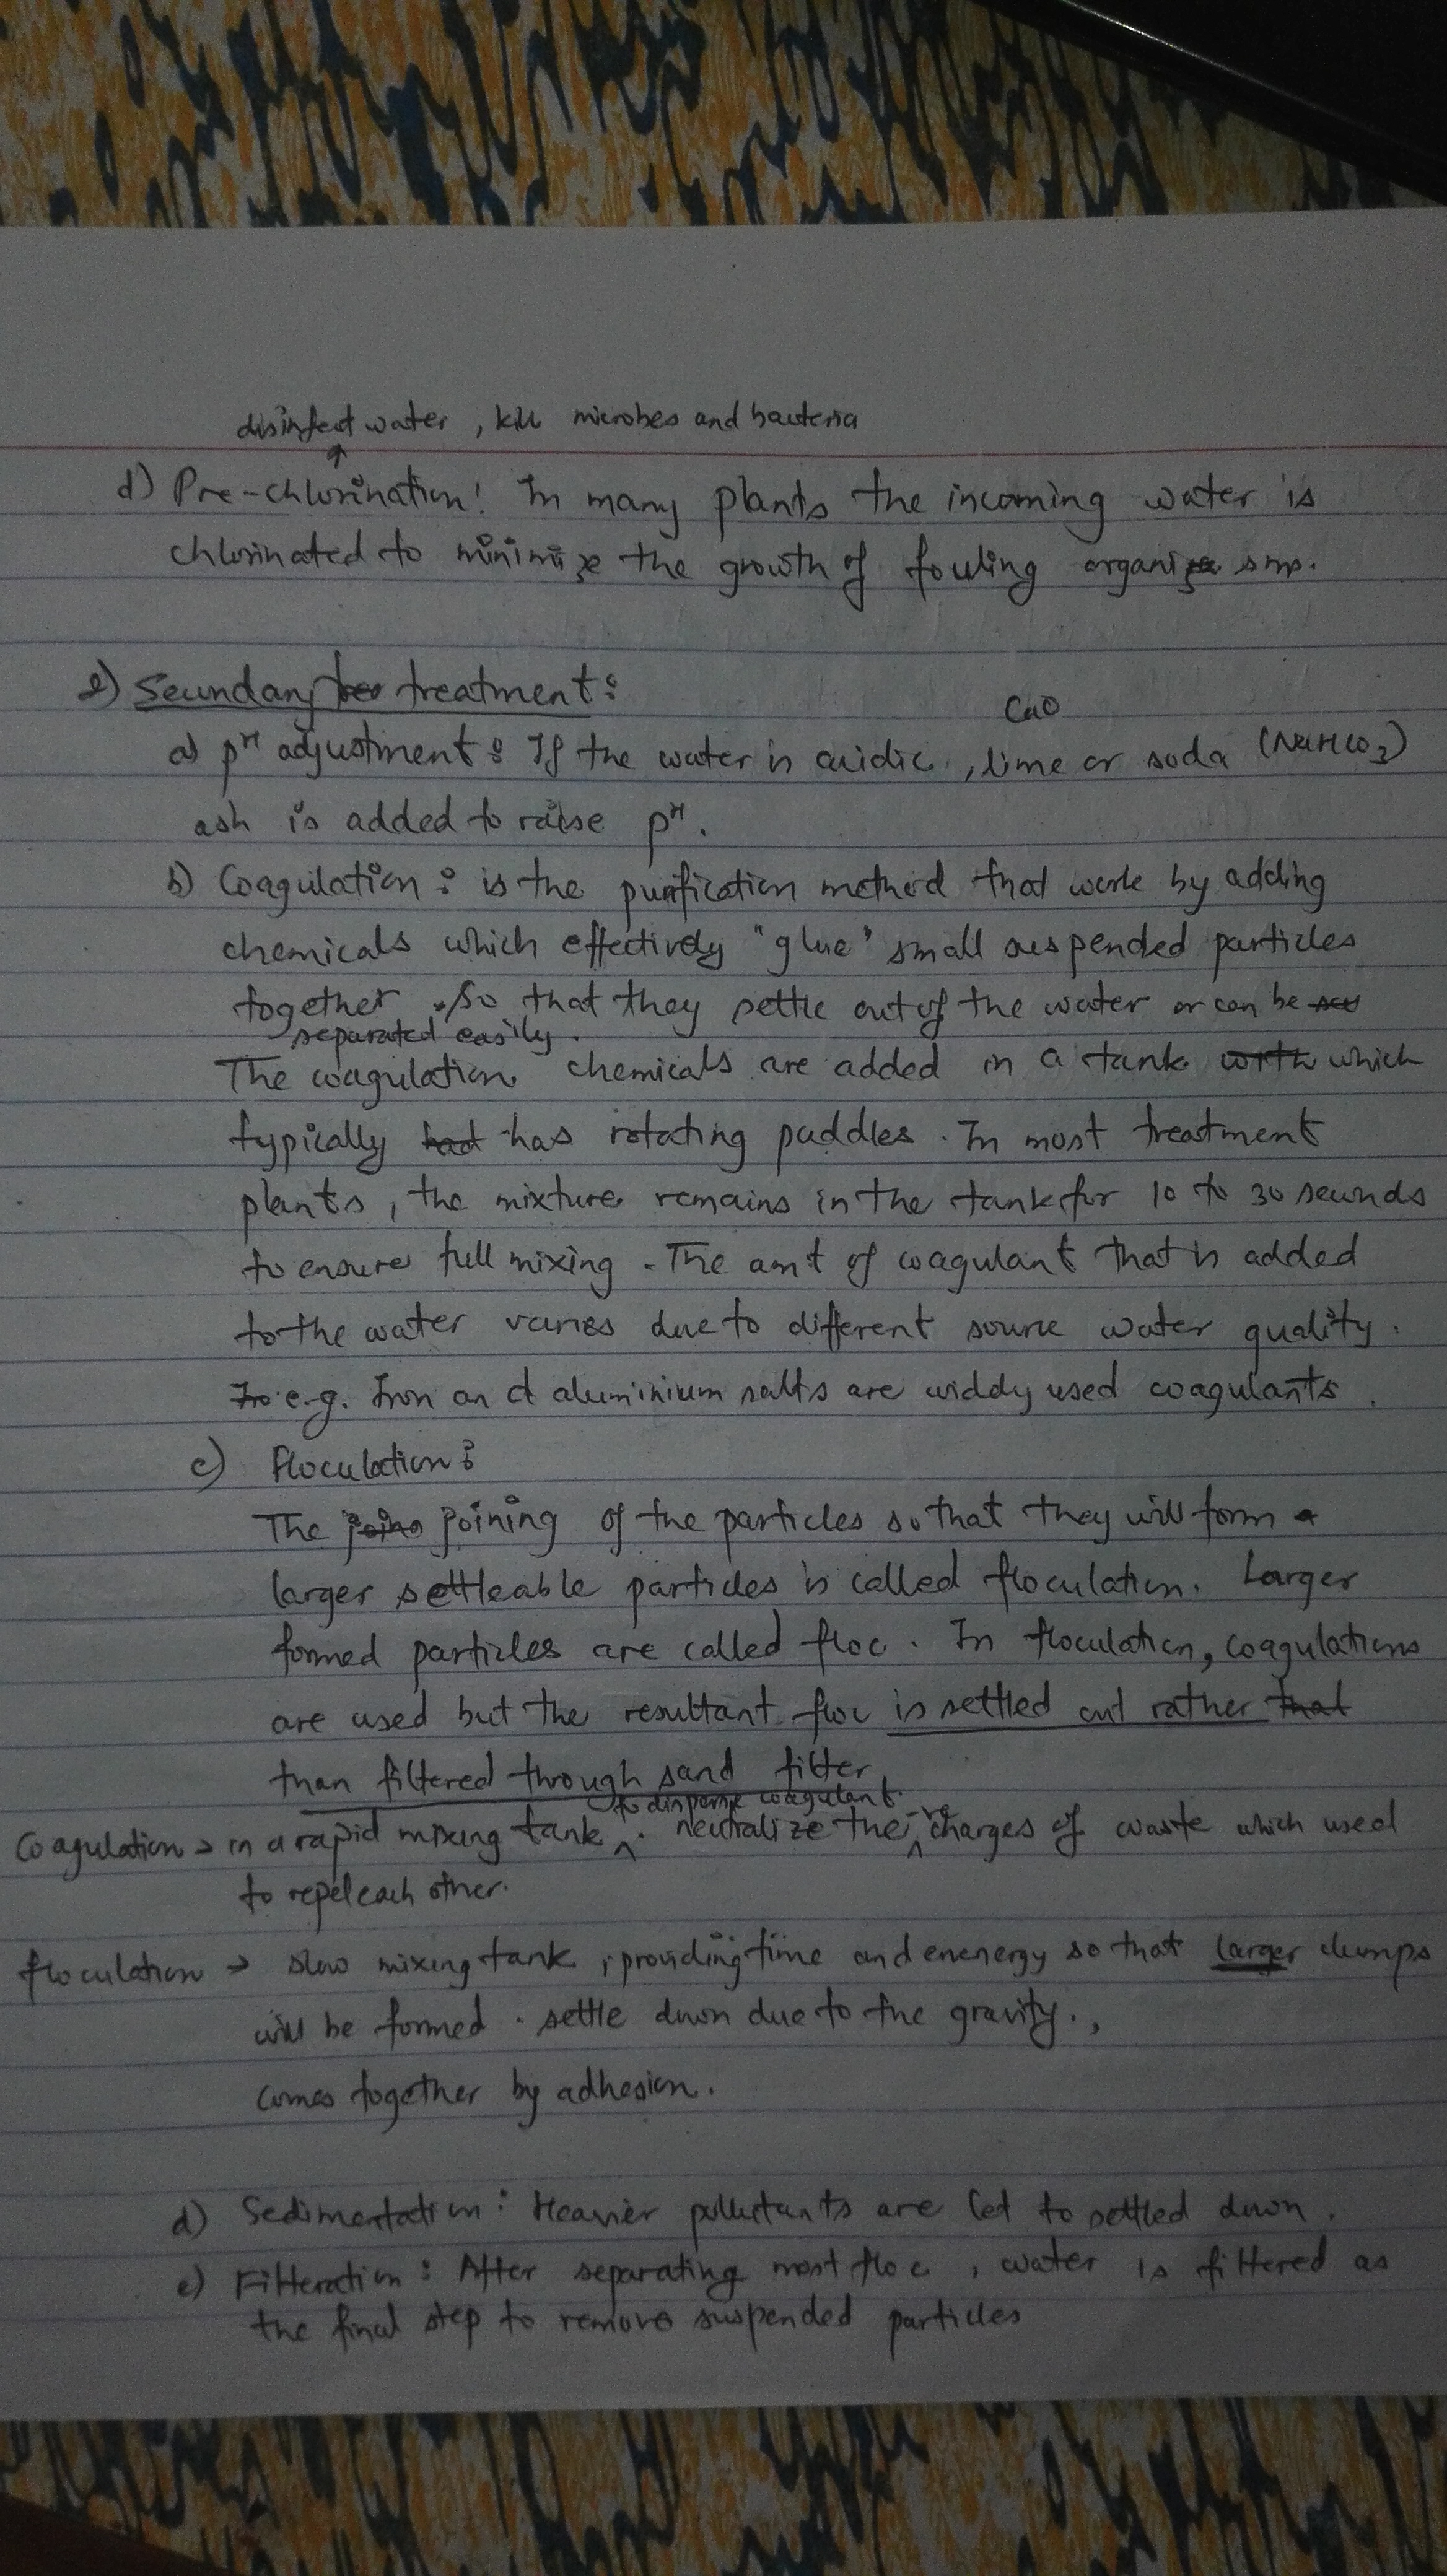 disinfect water, kill microbes and bacteria
d) Pre-chlorination: In many plants the incoming water is
chlorinated to minimize the growth of fouling organisms.
2) Secondary treatment:
CaO
a) pH adjustment: If the water is acidic, lime or soda (NaHCO3)
ash is added to raise pH.
b) Coagulation: is the purification method that work by adding
chemicals which effectively "glue" small suspended particles
together. So that they settle out of the water or can be
separated easily.
The coagulation chemicals are added in a tank with which
typically had has rotating paddles. In most treatment
plants, the mixture remains in the tank for 10 to 30 seconds
to ensure full mixing. The amt of coagulant that is added
to the water varies due to different source water quality.
e.g. Iron and aluminium salts are widely used coagulants.
c) Floculation:
The joins joining of the particles so that they will form a
larger settleable particles is called floculation. Larger
formed particles are called floc. In floculation, coagulations
are used but the resultant floc is settled out rather that
than filtered through sand filter.
to disperse coagulant.
Coagulation → in a rapid mixing tank. neutralize the -ve charges of waste which used
to repel each other.
floculation → slow mixing tank, providing time and enenergy so that larger clumps
will be formed. settle down due to the gravity.,
comes together by adhesion.
d) Sedimentation: Heavier pollutants are let to settled down.
e) Filteration: After separating most floc, water is filtered as
the final step to remove suspended particles